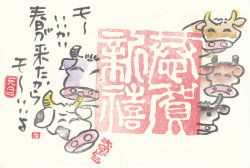 恭賀
新禧
モ〜
いいかい
春が来たから
モ〜いいよ